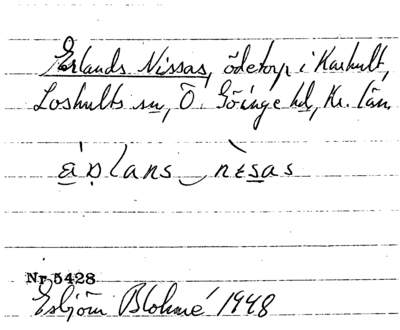 Erlands Nissas, ödetorp i Karhult,
Loshults sn, Ö. Göinge hd, Kr. län
Nr 5428
Esbjörn Blohmé 1948